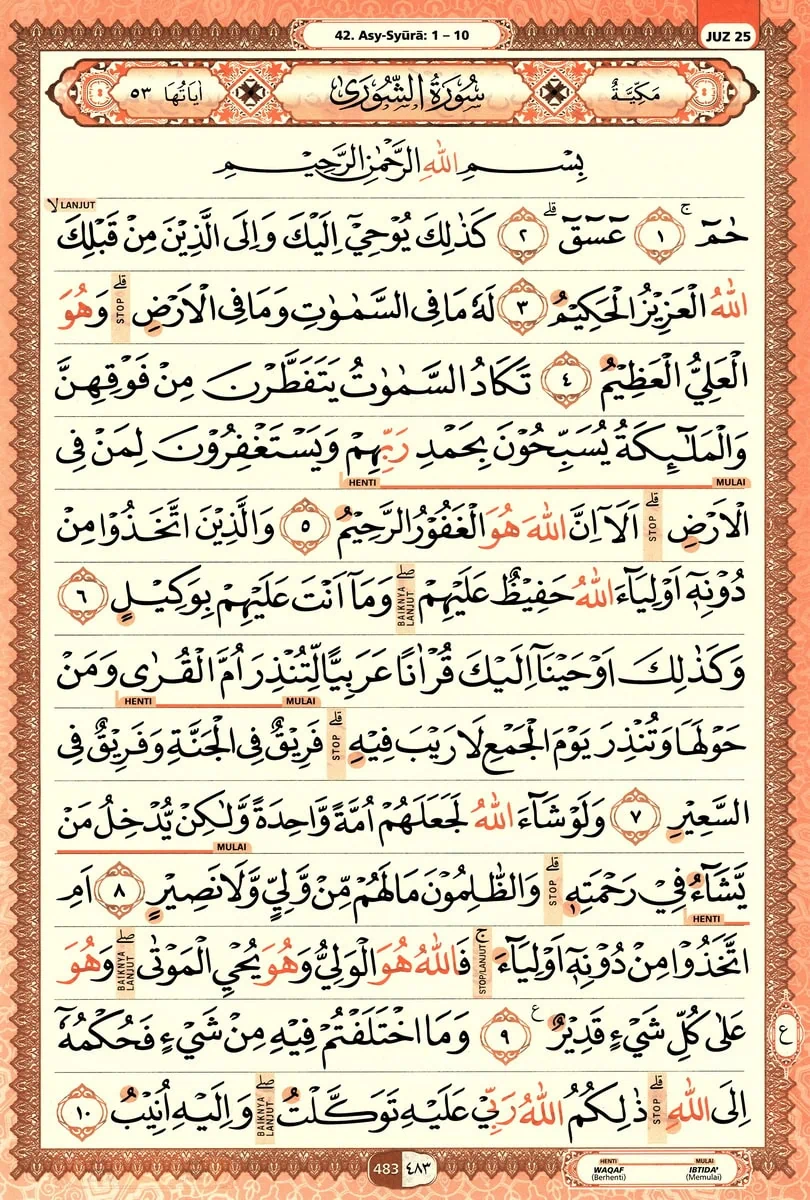 42. Asy-Syūrā: 1 – 10
JUZ 25
مَكِّيَّةٌ سُوْرَةُ الشُّوْرٰى اٰيَاتُهَا ٥٣
بِسْمِ اللّٰهِ الرَّحْمٰنِ الرَّحِيْمِ
لا LANJUT
حٰمۤ ۚ ١ عۤسۤقۤ ۗ ٢ كَذٰلِكَ يُوْحِيْٓ اِلَيْكَ وَاِلَى الَّذِيْنَ مِنْ قَبْلِكَ
اللّٰهُ الْعَزِيْزُ الْحَكِيْمُ ٣ لَهٗ مَا فِى السَّمٰوٰتِ وَمَا فِى الْاَرْضِ ۗ STOP وَهُوَ
الْعَلِيُّ الْعَظِيْمُ ٤ تَكَادُ السَّمٰوٰتُ يَتَفَطَّرْنَ مِنْ فَوْقِهِنَّ
وَالْمَلٰۤىِٕكَةُ يُسَبِّحُوْنَ بِحَمْدِ رَبِّهِمْ وَيَسْتَغْفِرُوْنَ لِمَنْ فِى
MULAI HENTI
الْاَرْضِ ۗ STOP اَلَآ اِنَّ اللّٰهَ هُوَ الْغَفُوْرُ الرَّحِيْمُ ٥ وَالَّذِيْنَ اتَّخَذُوْا مِنْ
دُوْنِهٖٓ اَوْلِيَاۤءَ اللّٰهُ حَفِيْظٌ عَلَيْهِمْ ۖ BAIKNYA LANJUT وَمَآ اَنْتَ عَلَيْهِمْ بِوَكِيْلٍ ٦
وَكَذٰلِكَ اَوْحَيْنَآ اِلَيْكَ قُرْاٰنًا عَرَبِيًّا لِّتُنْذِرَ اُمَّ الْقُرٰى وَمَنْ
MULAI HENTI
حَوْلَهَا وَتُنْذِرَ يَوْمَ الْجَمْعِ لَا رَيْبَ فِيْهِ ۗ STOP فَرِيْقٌ فِى الْجَنَّةِ وَفَرِيْقٌ فِى
السَّعِيْرِ ٧ وَلَوْ شَاۤءَ اللّٰهُ لَجَعَلَهُمْ اُمَّةً وَّاحِدَةً وَّلٰكِنْ يُّدْخِلُ مَنْ
MULAI
يَّشَاۤءُ فِيْ رَحْمَتِهٖ ۗ STOP وَالظّٰلِمُوْنَ مَا لَهُمْ مِّنْ وَّلِيٍّ وَّلَا نَصِيْرٍ ٨ اَمِ
HENTI
اتَّخَذُوْا مِنْ دُوْنِهٖٓ اَوْلِيَاۤءَ ۚ STOP/LANJUT فَاللّٰهُ هُوَ الْوَلِيُّ وَهُوَ يُحْيِ الْمَوْتٰى ۖ BAIKNYA LANJUT وَهُوَ
عَلٰى كُلِّ شَيْءٍ قَدِيْرٌ ࣖ ٩ وَمَا اخْتَلَفْتُمْ فِيْهِ مِنْ شَيْءٍ فَحُكْمُهٗٓ
ع
اِلَى اللّٰهِ ۗ STOP ذٰلِكُمُ اللّٰهُ رَبِّيْ عَلَيْهِ تَوَكَّلْتُ ۖ BAIKNYA LANJUT وَاِلَيْهِ اُنِيْبُ ١٠
483 ٤٨٣
HENTI MULAI
WAQAF IBTIDA'
(Berhenti) (Memulai)